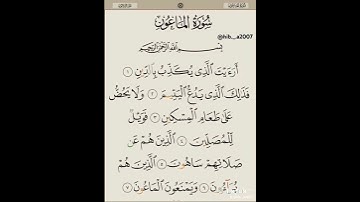 سُورَةُ المَاعُونِ
@hib._.a2007
بِسْمِ اللَّهِ الرَّحْمَٰنِ الرَّحِيمِ
أَرَءَيْتَ ٱلَّذِي يُكَذِّبُ بِٱلدِّينِ ١
فَذَٰلِكَ ٱلَّذِي يَدُعُّ ٱلْيَتِيمَ ٢ وَلَا يَحُضُّ
عَلَىٰ طَعَامِ ٱلْمِسْكِينِ ٣ فَوَيْلٌ
لِّلْمُصَلِّينَ ٤ ٱلَّذِينَ هُمْ عَن
صَلَاتِهِمْ سَاهُونَ ٥ ٱلَّذِينَ هُمْ
يُرَآءُونَ ٦ وَيَمْنَعُونَ ٱلْمَاعُونَ ٧